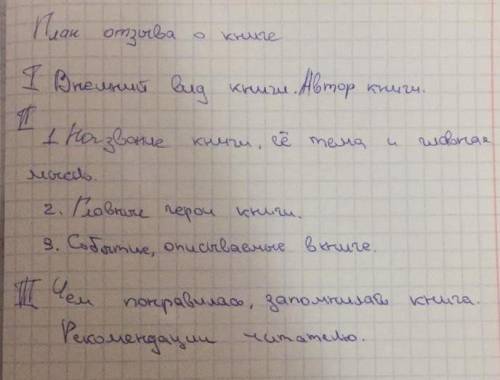 План отзыва о книге
I Внешний вид книги. Автор книги.
II
1. Название книги, её тема и главная
мысль.
2. Главные герои книги.
3. События, описываемые в книге.
III Чем понравилась, запомнилась книга.
Рекомендации читателю.